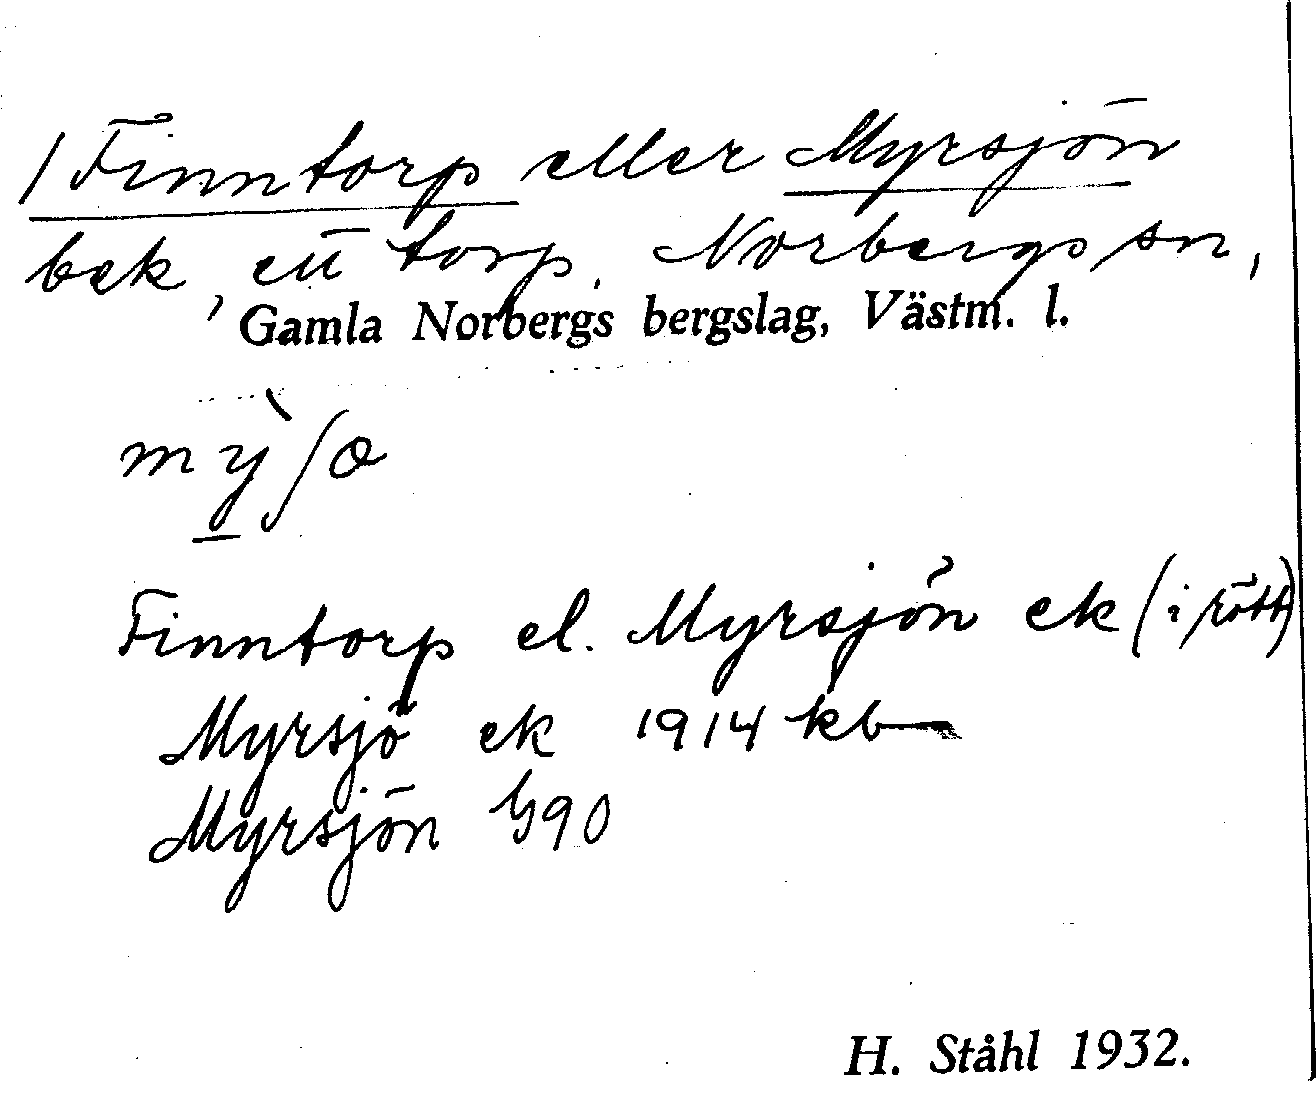 / Finntorp eller Myrsjön
bek, ett torp, Norbergs sn,
Gamla Norbergs bergslag, Västm. l.
Finntorp el. Myrsjön ek (i rött)
Myrsjö ek 1914 kb
Myrsjön G90
H. Ståhl 1932.